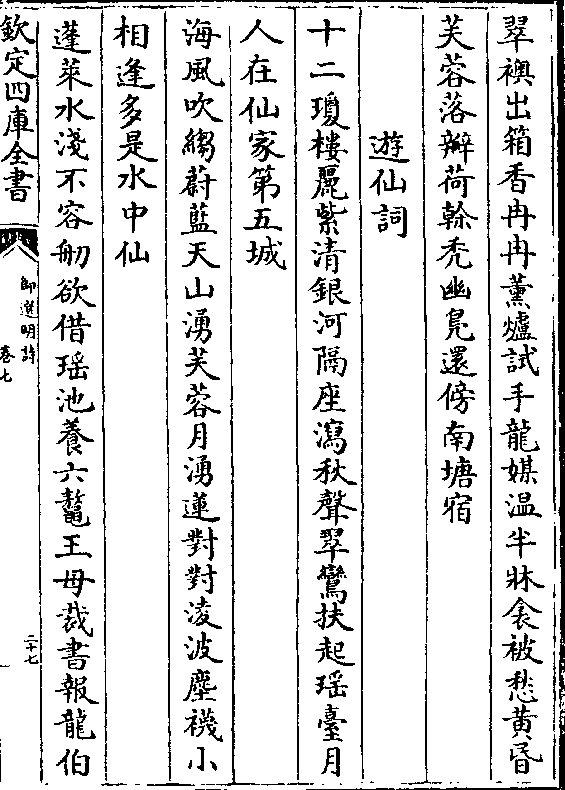 翠襖出箱香冉冉薰爐試手龍媒温半牀衾被愁黄昏
芙蓉落瓣荷榦秃幽鳧還傍南塘宿
遊仙詞
十二瓊樓麗紫清銀河隔座瀉秋聲翠鸞扶起瑶臺月
人在仙家第五城
海風吹縐蔚藍天山湧芙蓉月湧蓮對對淩波塵襪小
相逢多是水中仙
蓬萊水淺不容舠欲借瑶池養六鼇王母裁書報龍伯
欽定四庫全書
御選明詩
卷七
二十七